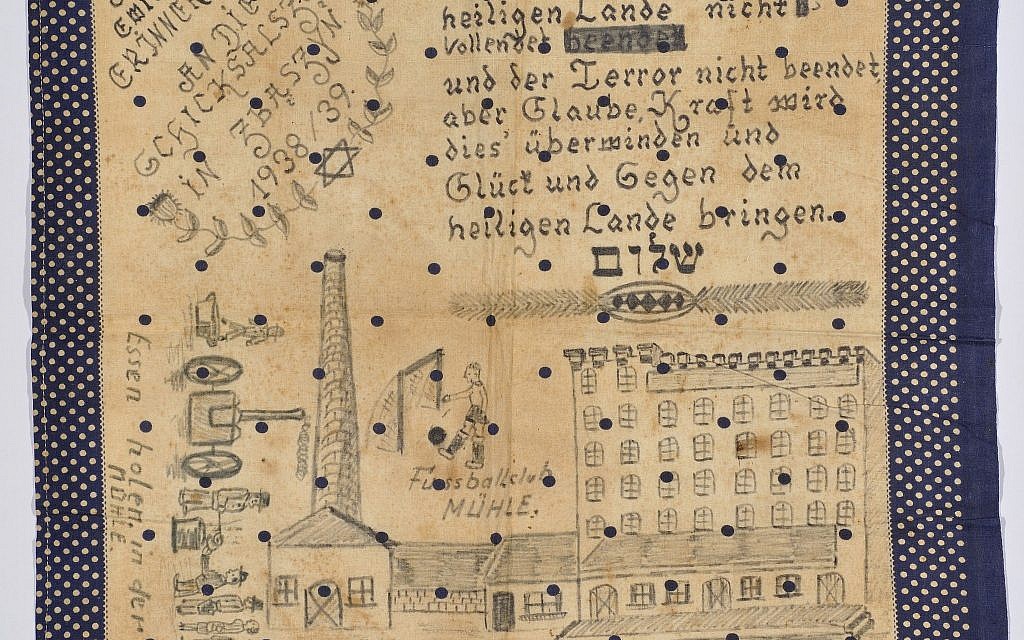 ERINNER
AN DIE
SCHICKSALS
IN ZBASZYN
1938/39.
heiligen Lande nicht
vollendet beendet
und der Terror nicht beendet,
aber Glaube, Kraft wird
dies' überwinden und
Glück und Segen dem
heiligen Lande bringen.
שלום
Fussballclub
MÜHLE.
Essen holen in der
MÜHLE.